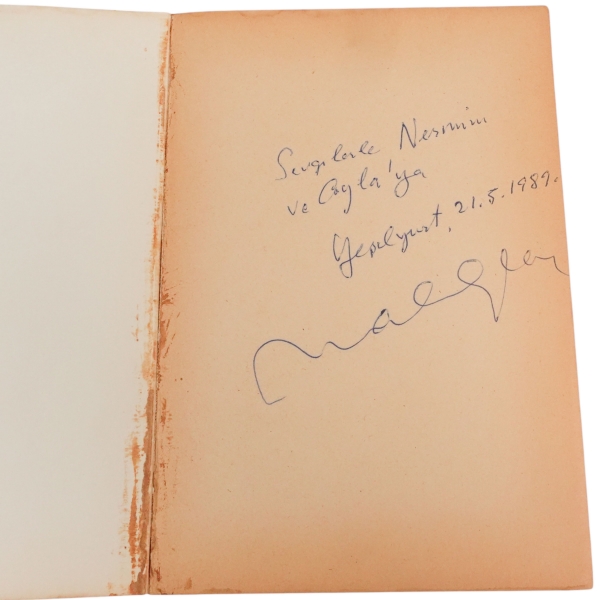 Sevgilerle Nesrinim
ve Çağla'ya
Yeşilyurt, 21.5.1989.